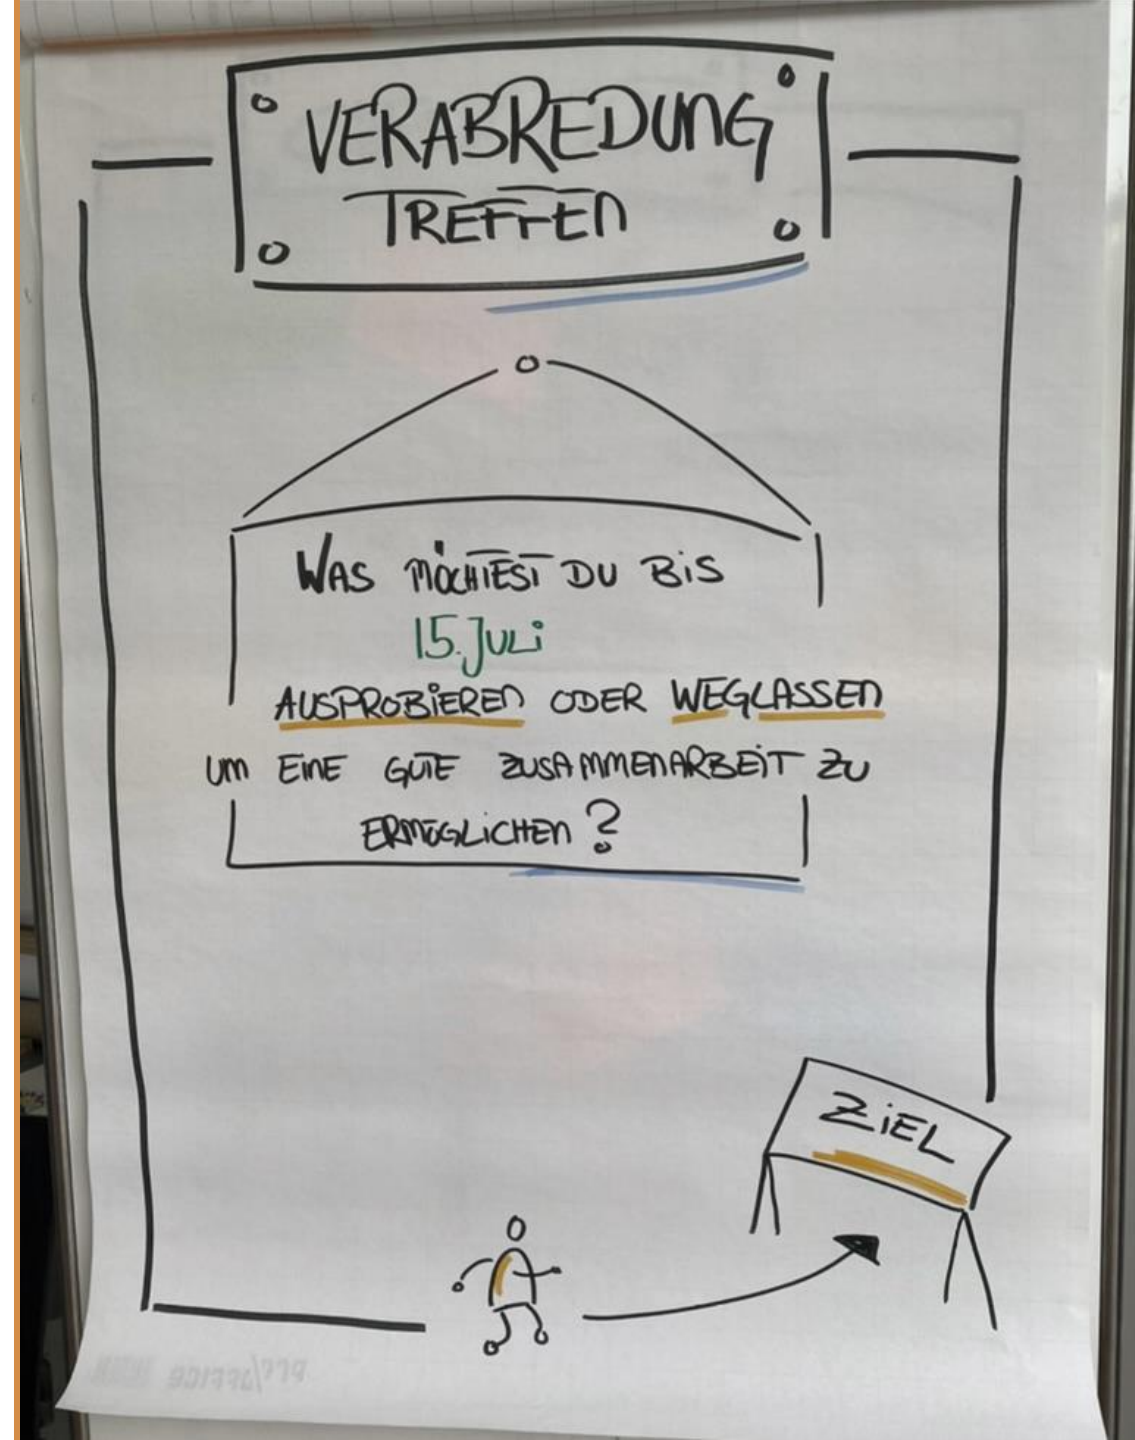 VERABREDUNG
TREFFEN
WAS MÖCHTEST DU BIS
15. JULI
AUSPROBIEREN ODER WEGLASSEN
UM EINE GUTE ZUSAMMENARBEIT ZU
ERMÖGLICHEN?
ZIEL